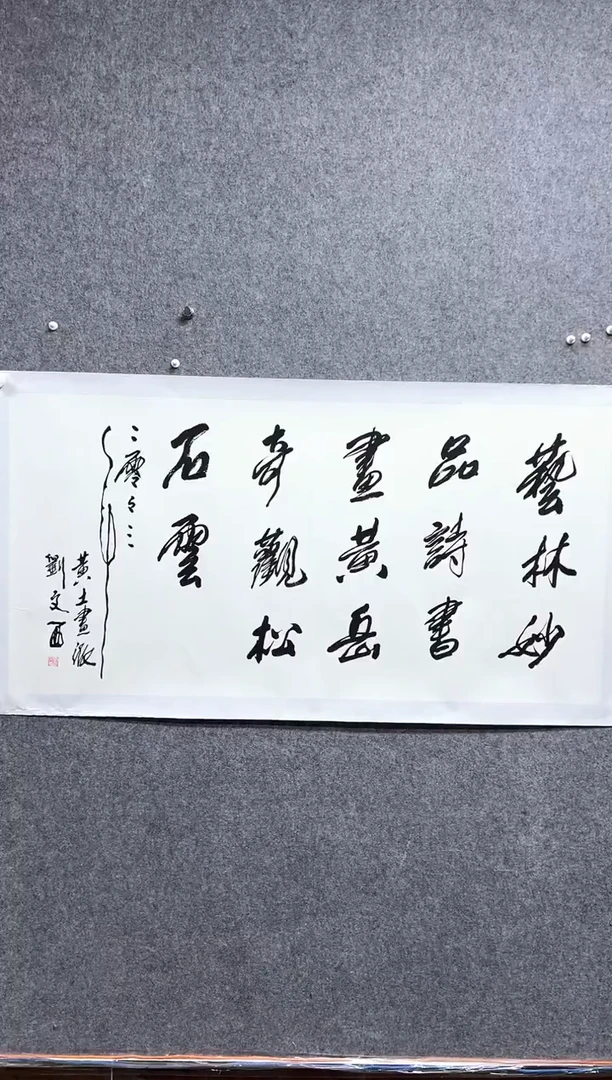 藝林妙
品詩書
畫黃岳
奇觀松
石雲
二零零三年
黃土畫派
劉文西